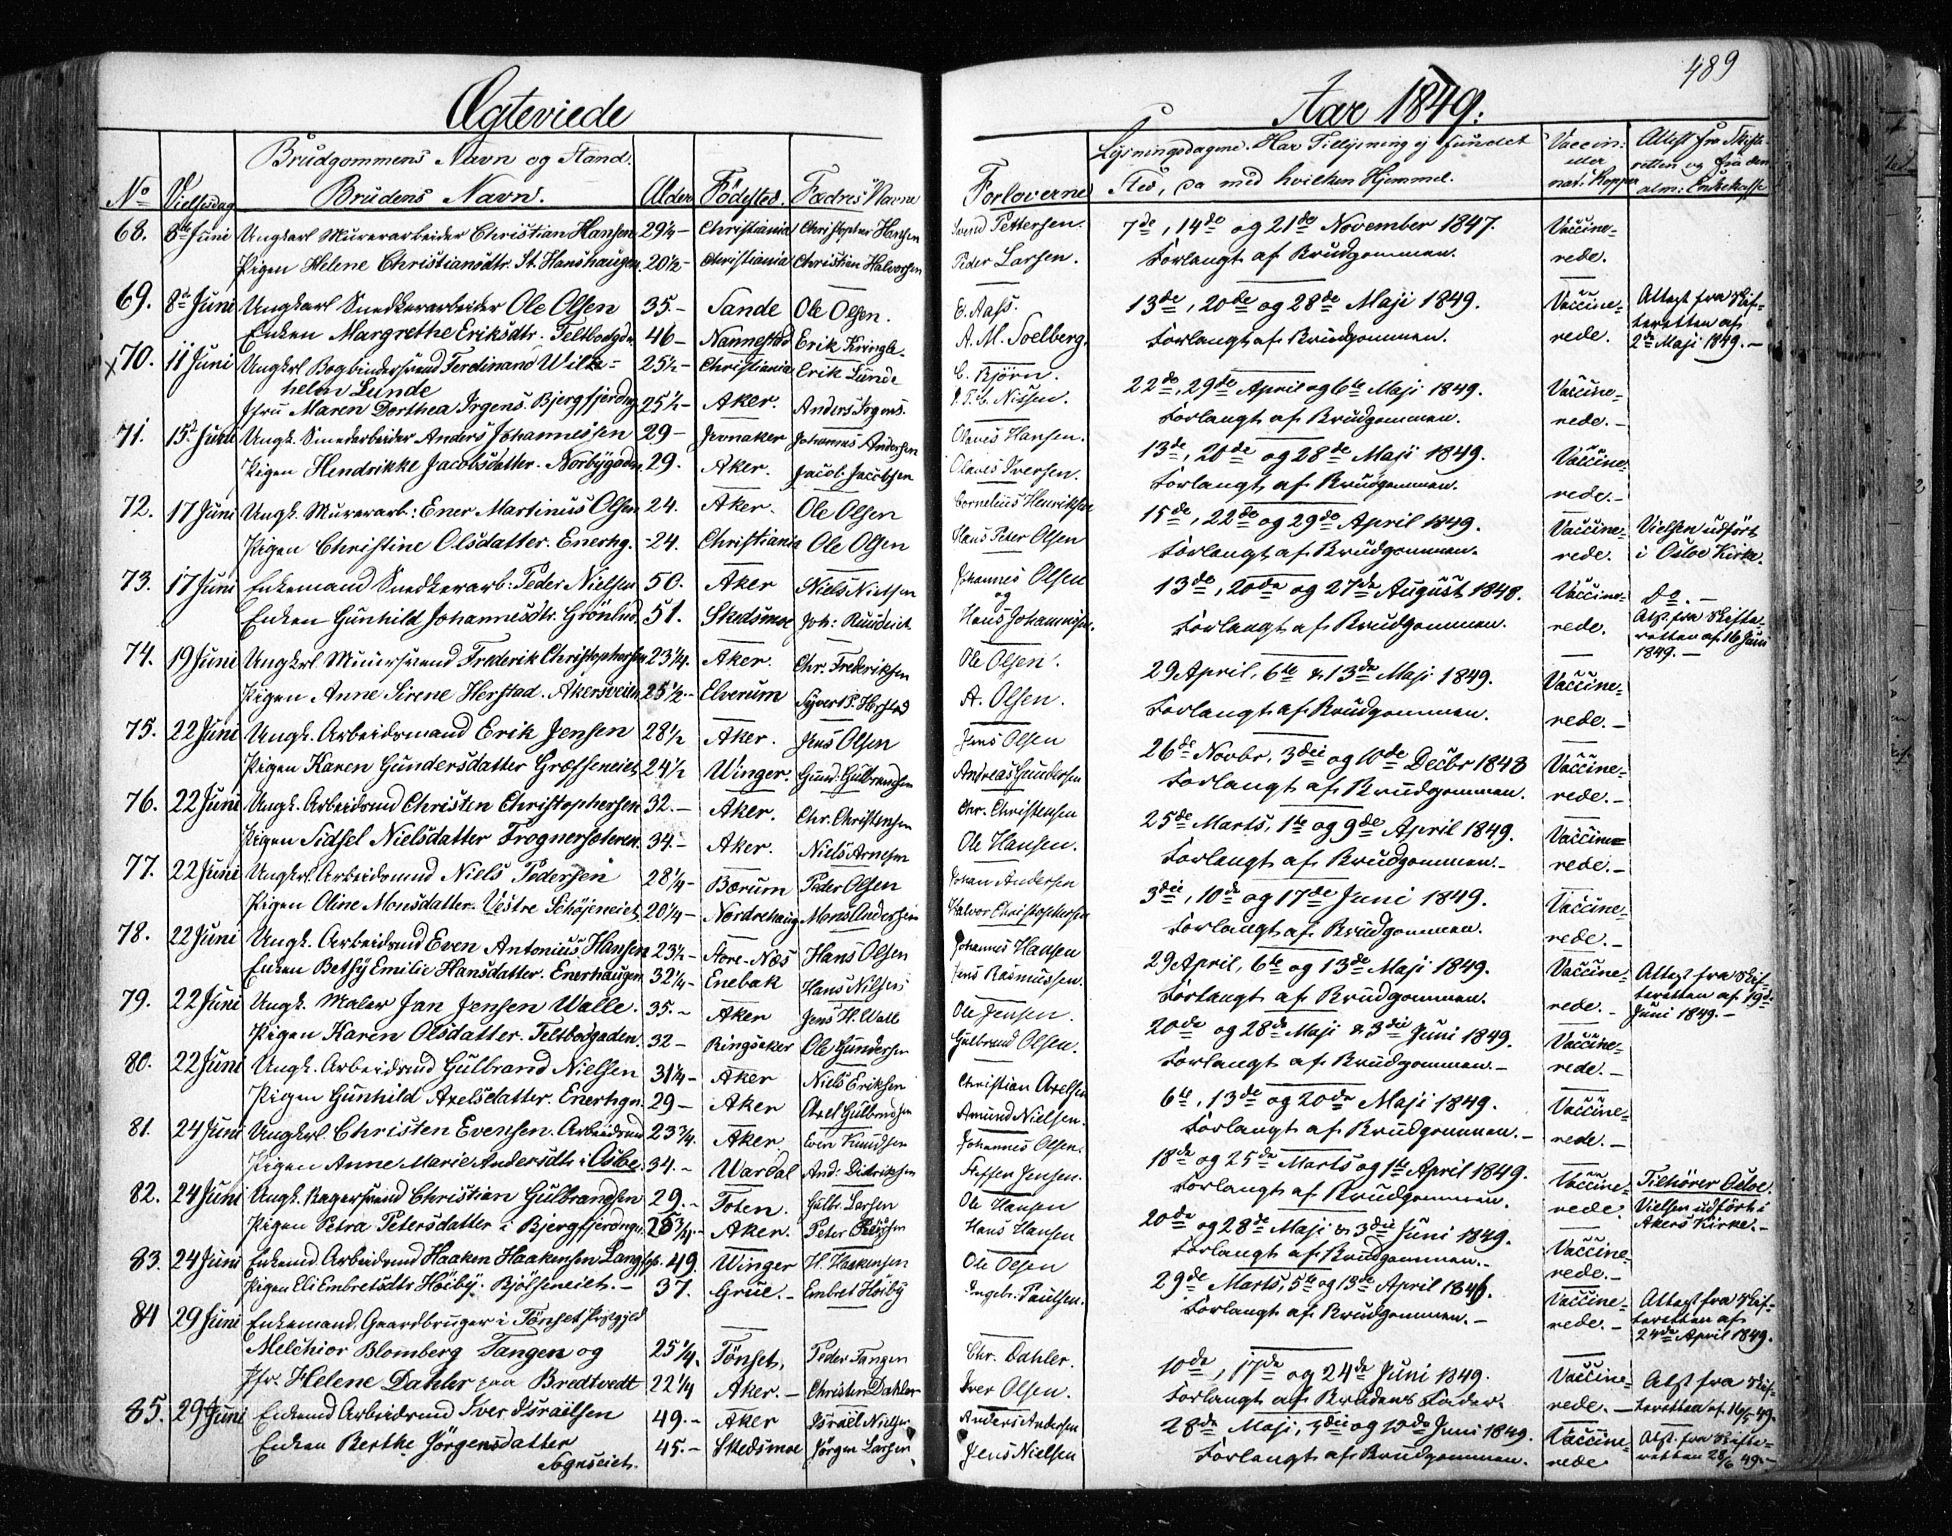 489
Ægteviede
Aar 1849.
No
Vielsesdag
Brudgommens Navn og Stand.
Brudens Navn.
Alder
Fødested.
Fædres Navne
Forloverne
Lysningsdagene. Har Tillysning ej fundet
Sted, da med hvilken Hjemmel.
Vaccin:
eller
nat: Kopper
Attest fra Skifte-
retten og fra den
alm: Enkekasse
68. 8de Juni Ungkarl Murerarbeider Christian Hansen 29¼- Christiania Christopher Hansen Svend Pettersen. 7de, 14de og 21de November 1847. Vaccine-
Pigen Helene Christiansdtr. St. Hanshaugen. 20½- Christiania Christian Halvorsen Peder Larsen. Forlangt af Brudgommen. rede.
69. 8de Juni Ungkarl Snedkerarbeider Ole Olsen 35.- Sande Ole Olsen. E. Aass. 13de, 20de og 28de Maji 1849. Vaccine- Attest fra Skif-
Enken Margrethe Eriksdtr. Teltbodgdn 46- Nannestad Erik Kringle. A. M. Soelberg. Forlangt af Brudgommen. rede. teretten af
2de Maji 1849.-
x 70. 11 Juni Ungkrl Bogbindersvend Ferdinand Wil- 25½- Christiania Erik Lunde C. Bjørn. 22de, 29de April og 6te Maji 1849. Vaccine-
helm Lunde
Jfru Maren Dorthea Irgens. Bjergfjerdng 25½- Aker. Anders Irgens. Nissen. Forlangt af Brudgommen. rede.-
71. 15de Juni Ungk. Smedarbeider Anders Johannessen 29- Jevnaker Johannes Andersen Olaves Hansen. 13de, 20de og 28de Maji 1849. Vaccine-
Pigen Hendrikke Jacobsdatter. Norbygadn. 29. Aker. Jacob Jacobsen Olaves Iversen. Forlangt af Brudgommen. rede.-
72. 17 Juni Ungk. Murerarb: Ener Martinus Olsen 24. Aker. Ole Olsen Cornelius Henriksen 15de, 22de og 29de April 1849. Vaccine- Vielsen udført
Pigen Christine Olsdatter. Enerhg. -24. Christiania Ole Olsen Hans Peter Olsen Forlangt af Brudgommen. rede. i Osloe Kirke.
73. 17 Juni Enkemand Snedkerarb: Peder Nielsen 50. Aker Niels Nielsen Johannes Olsen 13de, 20de og 27de August 1848. Vaccine- do.-
og
Enken Gunhild Johannesdtr. Grønlnd 51. Skedsmoe Joh: Ruudeiet Hans Johannesen. Forlangt af Brudgommen. rede. Atst. fra Skifte-
retten af 16 Juni
1849.-
74. 19 Juni Ungkrl Muursvend Frederik Christophersen 23¼. Aker. Chr. Frederiksen Ole Olsen. 29 April, 6te & 13de Maji 1849. Vaccine-
Pigen Anne Sirene Herstad. Akersveien 25½- Elverum Syvert P. Herstad A. Olsen. Forlangt af Brudgommen. rede.-
75. 22 Juni Ungk. Arbeidsmand Erik Jensen 28½ Aker. Jens Olsen Jens Olsen 26de Novbr, 3die og 10de Decbr 1848 Vaccine-
Pigen Karen Gundersdatter Græsseneiet 24½ Winger. Gund: Gulbrandsen Andreas Gundersen Forlangt af Brudgommen. rede.-
76. 22 Juni Ungk. Arbeidsmd Christen Christophersen 32.- Aker. Chr. Christensen Chr. Christensen 25de Marts, 1te og 9de April 1849. Vaccine-
Pigen Sidsel Nielsdatter Frognersæteren 34.- Aker. Niels Arnesen Ole Hansen. Forlangt af Brudgommen.- rede.-
77. 22 Juni Ungkrl. Arbeidsmnd Niels Pedersen 28¼- Bærum Peder Olsen Johan Andersen 3die, 10de og 17de Juni 1849. Vaccine-
Pigen Oline Monsdatter. Vestre Schøjeneiet 20¼- Nordrehaug Mons Andersen Halvor Christophersen Forlangt af Brudgommen. rede.-
78. 22 Juni Ungk. Arbeidsmd Even Antonius Hansen 23½- Store-Næs Hans Olsen Johannes Hansen 29 April, 6te og 13de Maji 1849. Vaccine- Attest fra Skif-
Enken Bethy Emilie Hansdatter. Enerhaugen 32¼- Enebak Hans Nilsen Jens Rasmussen. Forlangt af Brudgommen. rede.- teretten af 19de
Juni 1849.-
79. 22 Juni Ungk. Maler Jan Jensen Walle. 35.- Aker Jens H. Walle Ole Jensen. 20de og 28de Maji & 3die Juni 1849. Vaccine-
Pigen Karen Olsdatter. Teltbodgaden. 32- Ringsaker Ole Gundersen Gulbrand Olsen. Forlangt af Brudgommen.- rede.-
80. 22 Juni Ungk. Arbeidsmd Gulbrand Nielsen 31¼- Aker Niels Eriksen Christian Axelsen 6te, 13de og 20de Maji 1849. Vaccine-
Pigen Gunhild Axelsdatter. Enerhgn. 29- Aker Axel Gulbrndsen Amund Nielsen. Forlangt af Brudgommen.- rede.-
81. 24 Juni Ungkrl. Christen Evensen. Arbeidsmd 23¾. Aker Even Knudsen Johannes Olsen. 18de og 25de Marts og 1te April 1849. Vaccine- Tilhører Osloe.
Pigen Anne Marie Andersdtr i Osloe 34.- Wardal And: Didriksen Steffen Jensen. Forlangt af Brudgommen. rede. Vielsen udført i
Akers Kirke.-
82. 24 Juni Ungk. Bagersvend Christian Gulbrandsen 29.- Toten. Gulbr. Larsen Ole Hansen 20de og 28de Maji & 3die Juni 1849. Vaccine-
Pigen Petra Petersdatter i Bjergfjerdngn 25¾- Aker. Peter Hans Hansen Forlangt af Brudgommen. rede.-
83. 24 Juni Enkemd. Arbeidsmd Haaken Haakensen Langss. 49. Winger H. Haakensen Ole Olsen 29de Marts, 5te og 13de April 1846. Vaccine- Attest fra Skif-
Pigen Eli Embretsdtr Høiby. Bjølseneiet.- 37. Grue.- Embret Høiby Ingebr. Paulsen. Forlangt af Brudgommen.- rede.- teretten af
24de April 1849.
84 29 Juni Enkemand Gaardbruger i Tønset Præstegjeld
Melchior Blomberg Tangen og 25¼. Tønset. Peder Tangen Chr. Dahler. 10de, 17de og 24de Juni 1849. Vaccine- Atst fra Skif-
Jfr. Helene Dahler paa Bredtvedt 22¼ Aker.- Christen Dahler Iver Olsen. Forlangt af Brudens Fader. rede.- teretten af 16/5 49.
85. 29 Juni Enkemd Arbeidsmd Iver Israelsen 49.- Aker Israel Nielsen Anders Andersen 28de Maji, 3die og 10de Juni 1849. Vaccine- Atst. fra Skifte-
Enken Berthe Jørgensdatter 45.- Skedsmoe Jørgen Larsen Jens Nielsen Forlangt af Brudgommen. rede retten 28/6 49.-
Sognseiet.